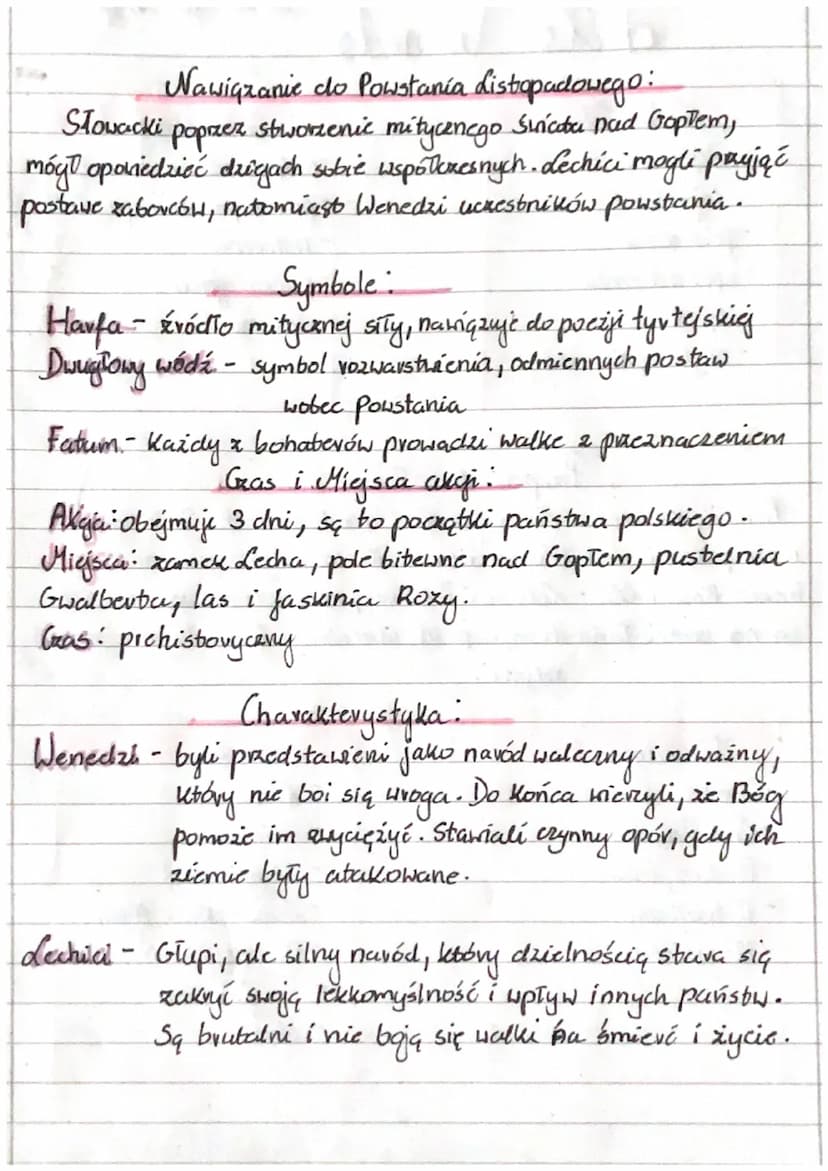 Nawiązanie do Powstania Listopadowego:
Słowacki poprzez stworzenie mitycznego świata nad Gopłem,
mógł opowiedzieć dziejach sobie współczesnych. Lechici mogli przyjąć
postawe zaborców, natomiast Wenedzi uczestników powstania.
Symbole:
Harfa - źródło mitycznej siły, nawiązuje do poezji tyrtejskiej
Dwugłowy wódź - symbol rozwarstwienia, odmiennych postaw
wobec Powstania
Fatum - Każdy z bohaterów prowadzi walke z przeznaczeniem
Czas i Miejsca akcji:
Akcja: obejmuje 3 dni, są to początki państwa polskiego.
Miejsca: zamek Lecha, pole bitewne nad Gopłem, pustelnia
Gwalberta, las i jaskinia Rozy.
Czas: prehistoryczny
Charakterystyka:
Wenedzi - byli przedstawieni jako naród waleczny i odważny,
który nie boi się wroga. Do końca wierzyli, że Bóg
pomoże im zwyciężyć. Stawiali czynny opór, gdy ich
ziemie były atakowane.
Lechici - Głupi, ale silny naród, który dzielnością stara się
zakryć swoją lekkomyślność i wpływ innych państw.
Są brutalni i nie boją się walki na śmierć i życie.